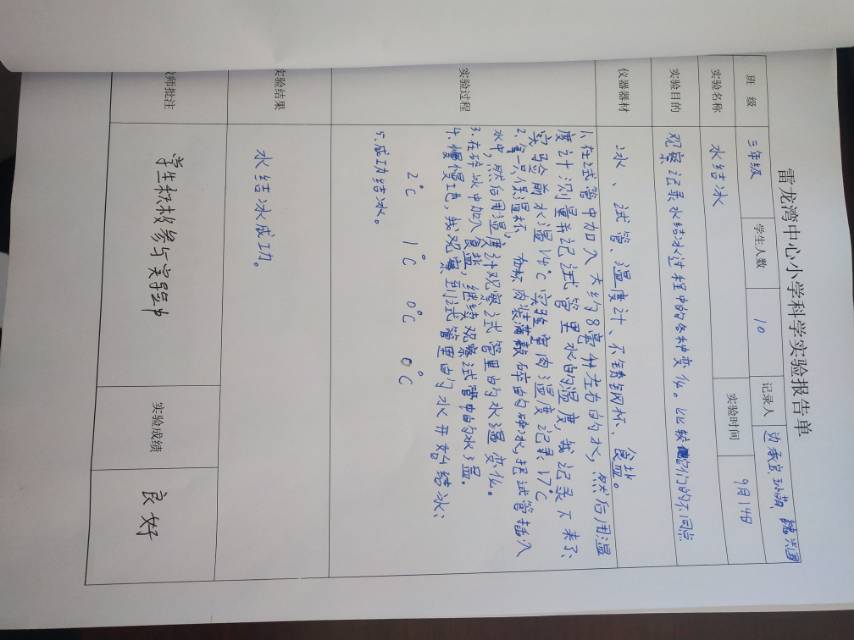 雷龙湾中心小学科学实验报告单
班 级 三年级 学生人数 10 记录人
实验名称 水结冰 实验时间 9月14日
实验目的 观察记录水结冰过程中的各种变化。比较它们的不同点
仪器器材 冰、试管、温度计、不锈钢杯、食盐。
实验过程
1、在试管中加入大约8毫升左右的水，然后用温
度计测量并记试管里水的温度，我记录下来了：
实验前水温14℃ 实验室内温度记录17℃
2、拿一只保温杯，在杯内装满敲碎的碎冰，把试管插入
水中，然后用温度计观察试管里的水温变化。
3.在碎冰中加入食盐，继续观察试管中的水温。
4.慢慢地，我观察到试管里的水开始结冰：
2℃ 1℃ 0℃ 0℃
5.成功结冰。
实验结果 水结冰成功。
师批注 学生积极参与实验中 实验成绩 良好